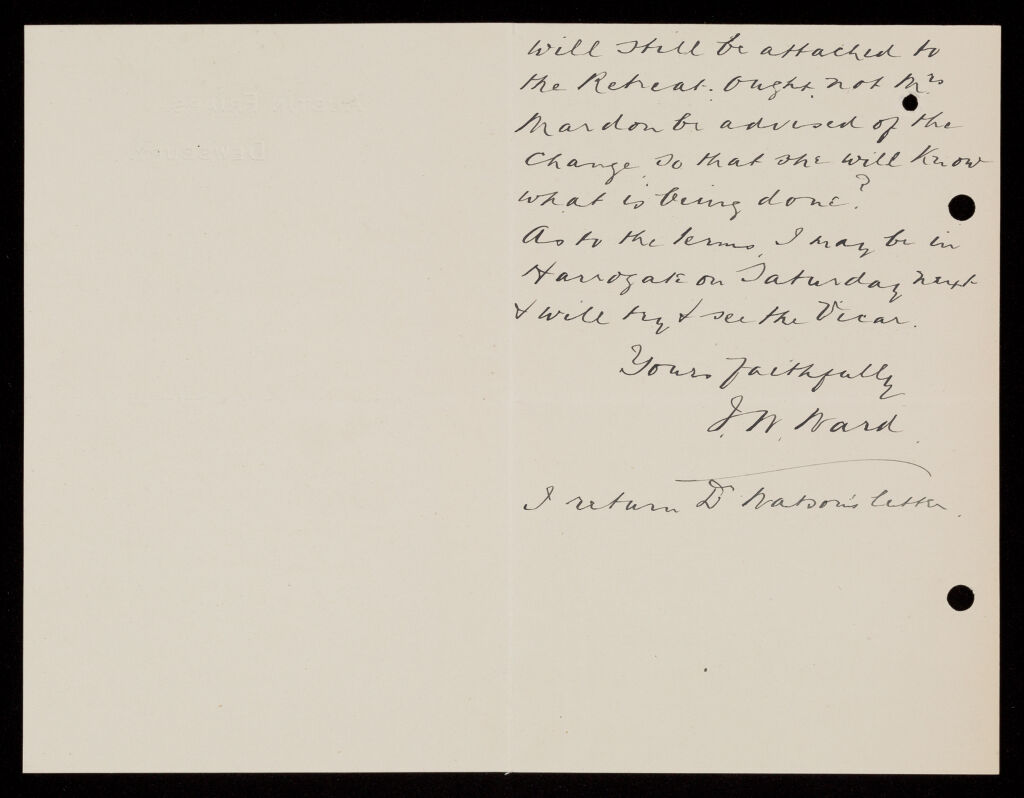 will still be attached to
the Retreat. Ought not Mrs
Mardon be advised of the
Change, so that she will Know
what is being done?
As to the terms, I may be in
Harrogate on Saturday next
& will try & see the Vicar.
Yours faithfully
J. W. Ward.
I return Dr Watson's letter.